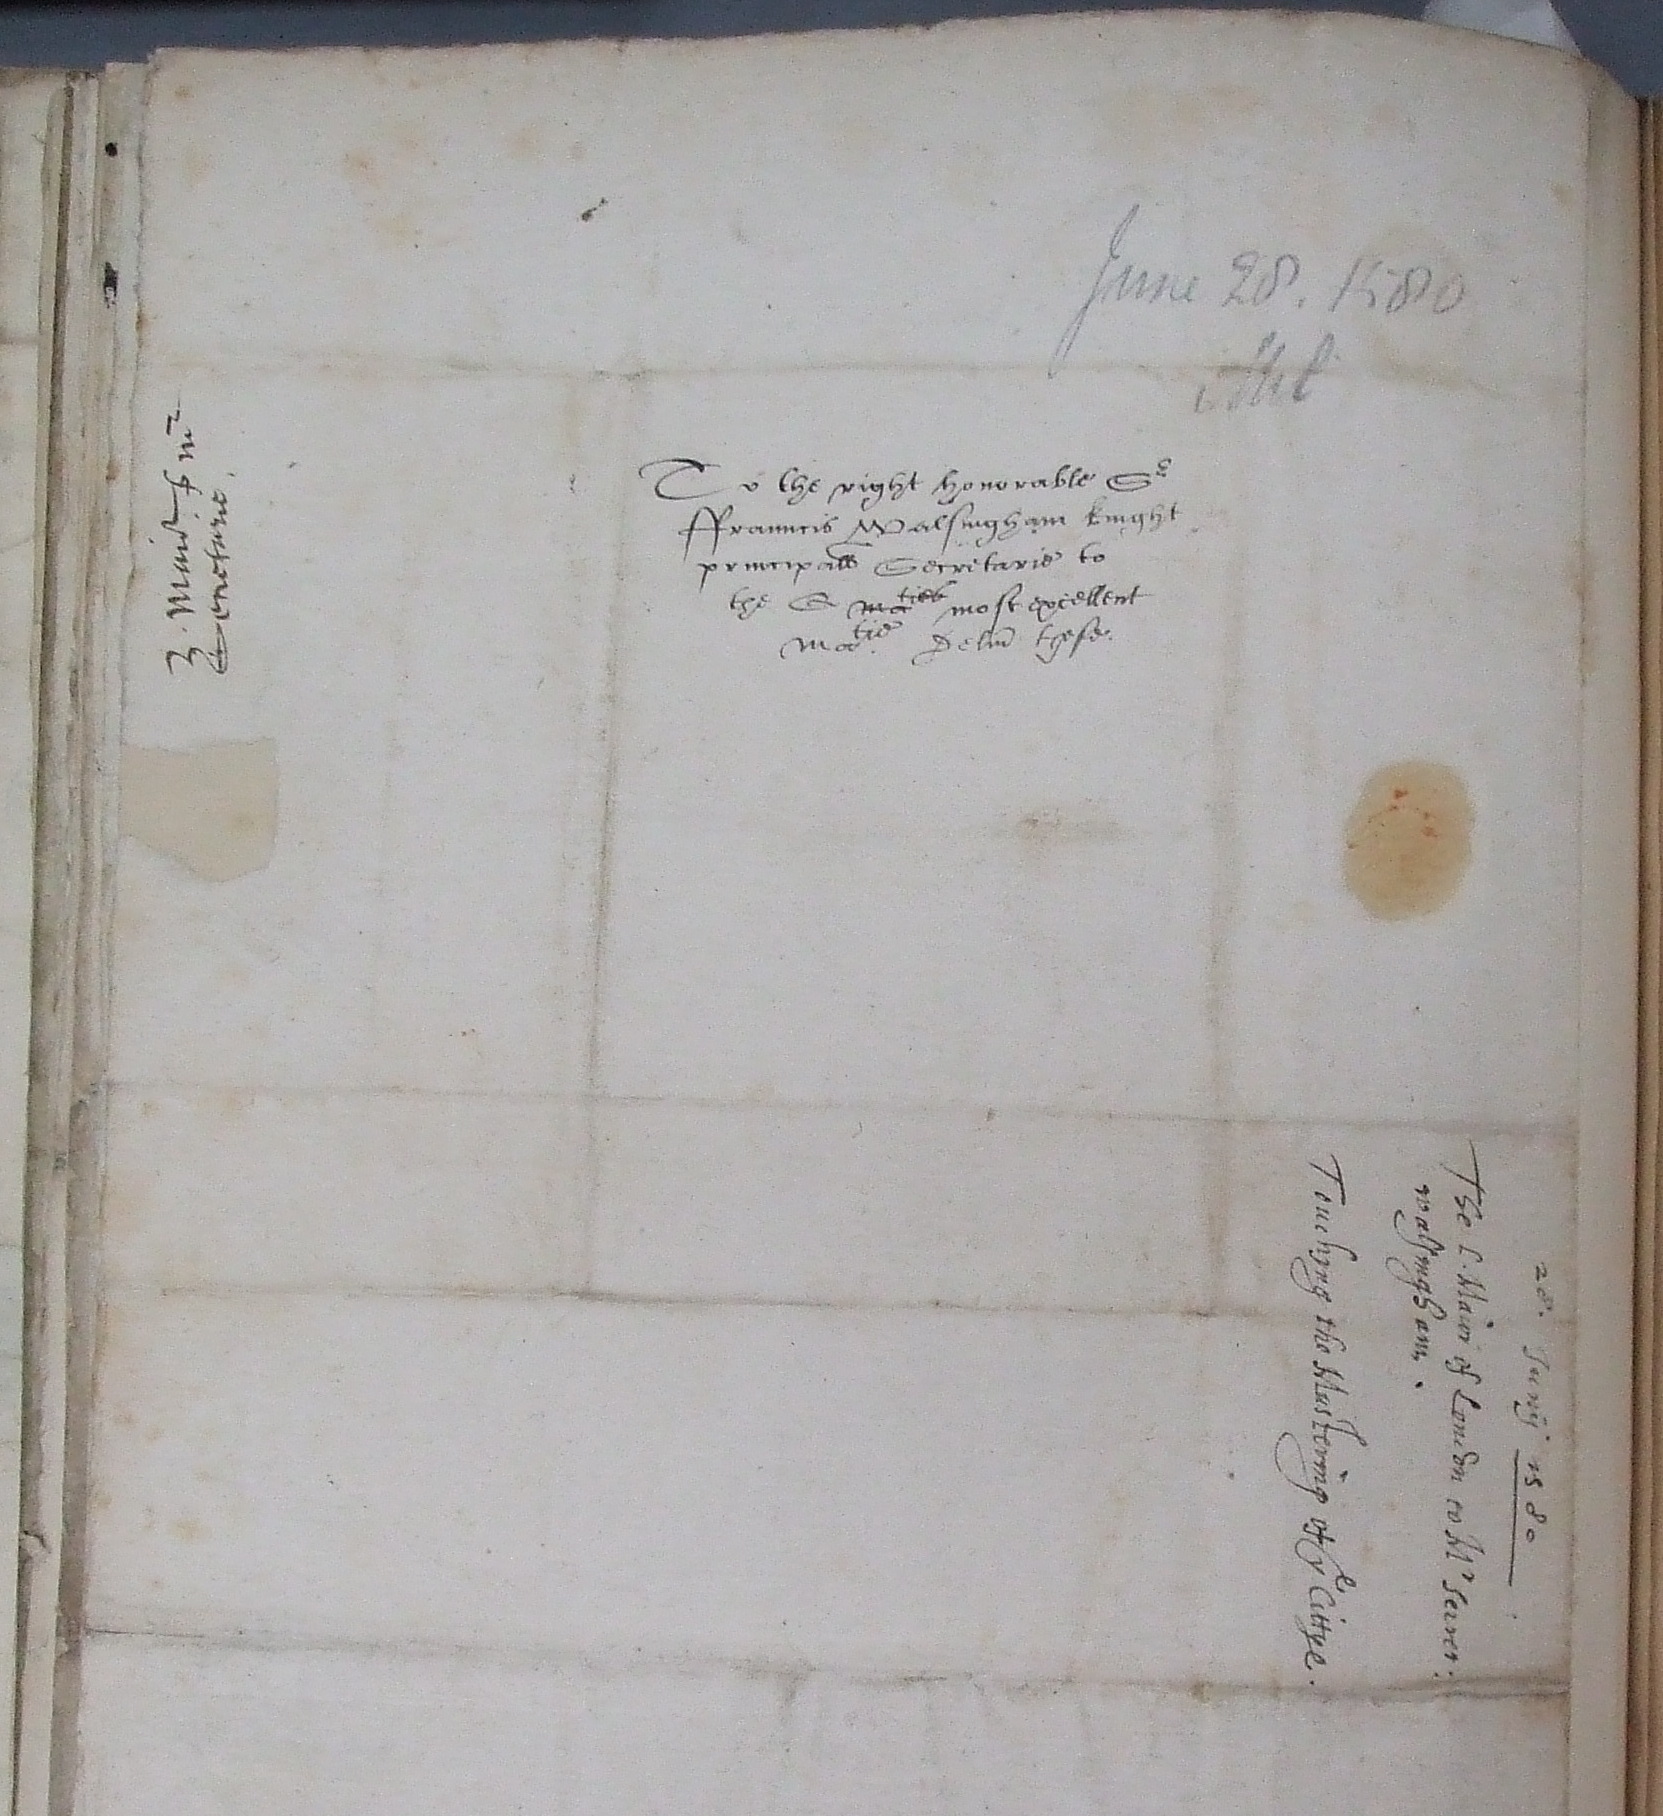 June 28. 1580
To the right honorable Sr
ffrauncis Walsingham knight
principall Secretarie to
the Q maties most excellent
matie. Delivr these.
28. Junij 1580
The L. Maior of London to Mr Secret:
walsingham.
Touchyng the Mustering of ye Cittye.